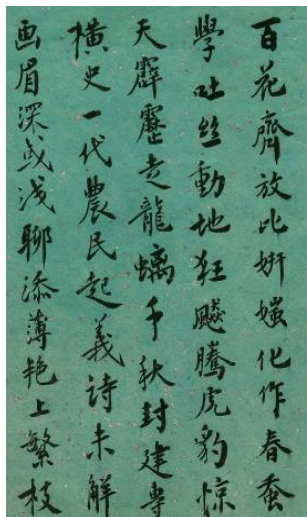 百花齊放比妍媸化作春蚕
學吐丝動地狂飇騰虎豹惊
天霹靂走龍螭千秋封建專
橫史一代農民起義詩未解
画眉深或浅聊添薄艳上繁枝